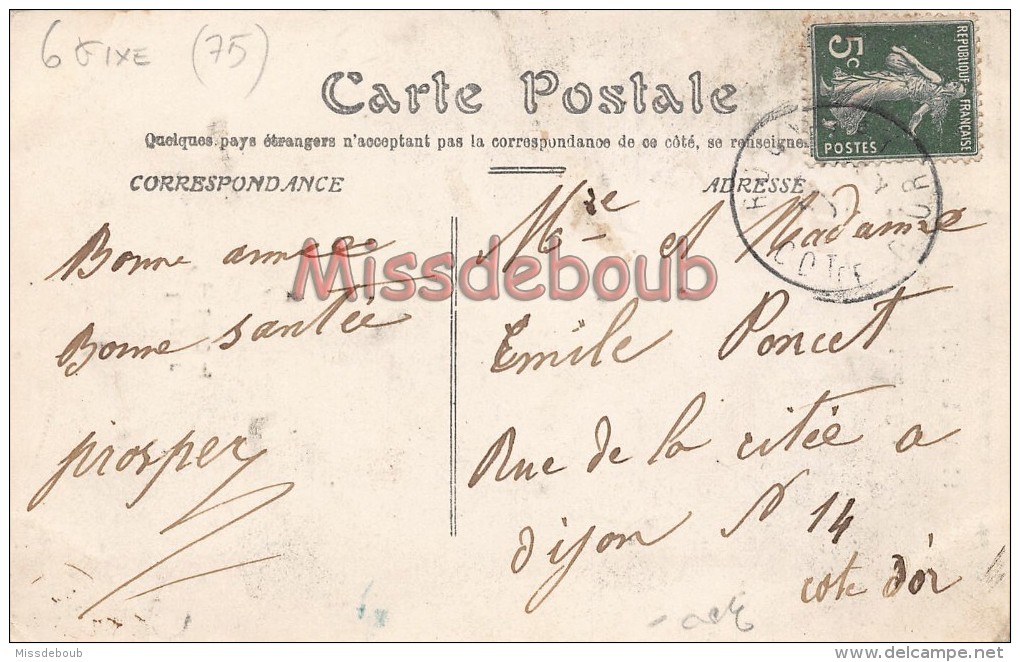 6 FIXE (75)
Carte Postale
Quelques pays étrangers n'acceptant pas la correspondance de ce côté, se renseigne
CORRESPONDANCE
ADRESSE
5c
REPUBLIQUE FRANÇAISE
POSTES
COTE D'OR
Bonne année
Bonne santée
prosper
Mre et Madame
Emile Poncet
Rue de la citée a
dijon N 14
cote d'or
Missdeboub
Missdeboub
delcampe.net